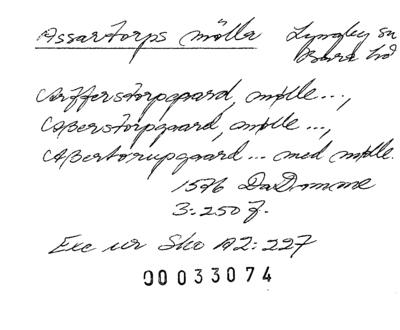 Assartorps mölla Lyngby sn
Bara hd
Asserstorpgaard, mølle...,
Aberstorpgaard, mølle...,
Abertorupgaard... med mølle.
DaDomæne
3:250 f.
Exc ur Sko A2:227
00033074